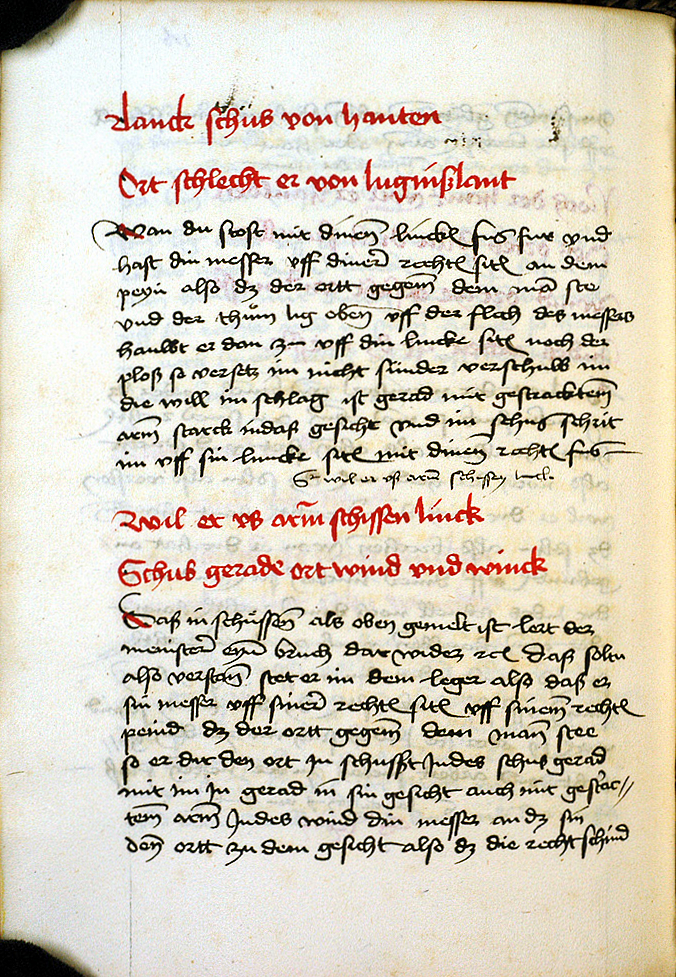 Lanck schus von hanten
Ort schlecht er von luginßlant
Wan du stost mit dinem lincken fus fur vnd
hast din messer vff diner rechten siten an dem
peyn also dz der ortt gegem dem ma ste
vnd der thům lig oben vff der flech des messers
hauwt er dan zu vff din lincke siten noch der
ploß so versetz im nicht sunder verschuib im
die will im schlag ist gerad mit gestracktem
arm starck indaß gesicht vnd im schus schrit
im vff sin lincke siten mit dinem rechten fus
Er wil er vß arm schissen linck
Wil er vß arm schissen linck
Schus gerade ort wind vnd winck
Daß in schüssen als oben gemelt ist lert der
meinster eyn bruch dar wider daß soltu
also versten stet er in dem leger also daß er
sin messer vff siner rechten siten vff sinem rechten
peind dz der ortt gegem dem man stee
so er dir den ort zu schusst Indes schus gerad
mit im In gerad in sin gesicht auch mit gestrac//
tem arm Indes wind din messer an dz sin
den ortt zu dem gesicht also dz die recht schnid